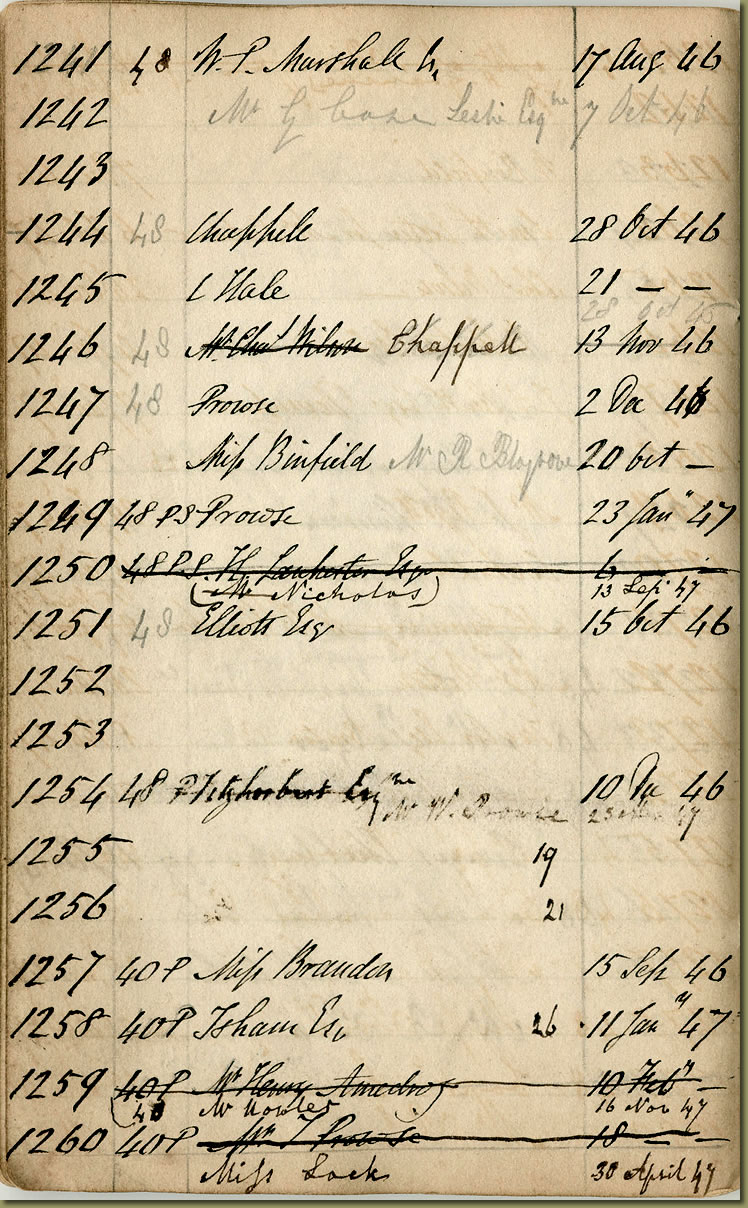 1241 48 W. P. Marshall 17 Aug 46
1242 Mr G Case Leslie Esq 7 Oct 46
1243
1244 48 Chappell 28 Oct 46
1245 C Hale 21 — —
28 Oct 45
1246 48 Chappell 13 Nov 46
1247 48 Prowse 2 Dec 46
1248 Miss Binfield Mr R Blagrove 20 Oct —
1249 48 P S Prowse 23 Jany 47
1250 48 P S. H. Lankester Esqr 6 —
(Mr Nicholas) 13 Sep 47
1251 48 Elliott Esq 15 Oct 46
1252
1253
1254 48 P Fitzherbert Esq 10 Dec 46
Mr W. Prowse 47
1255 19
1256 21
1257 40 P Miss Brandon 15 Sep 46
1258 40 P Isham Esq 26 11 Jany 47
1259 40 P Mr Henry 10 Feby —
(48 Mr 16 Nov 47
1260 40 P Mr T Prowse 18 — —
Miss Lock 30 April 47